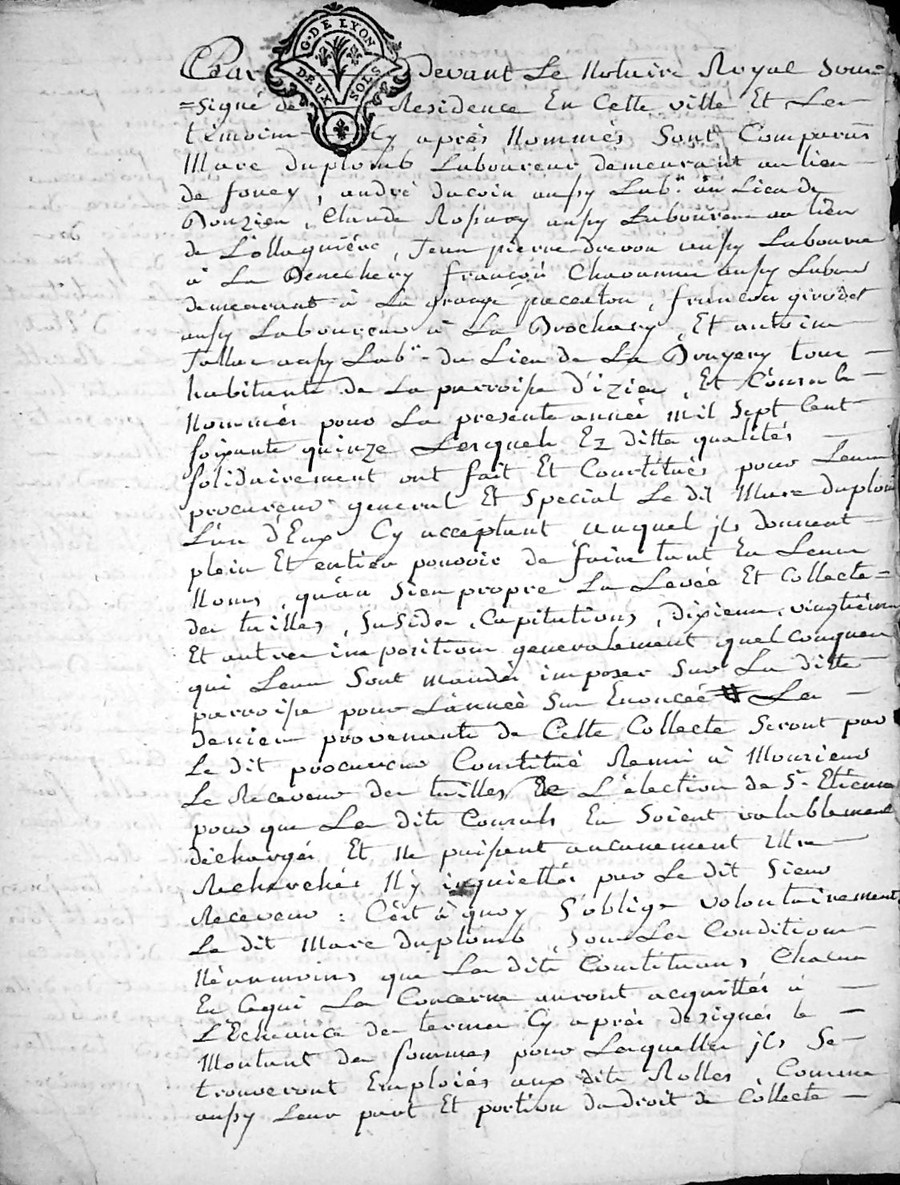 G. DE LYON
DEUX SOLS
Par Devant Le Notaire Royal Sous
=Signé de Residence En Cette ville Et Les
temoins Cy aprés Nommés Sont Comparus
Marc duplomb Laboureur demeurant au lieu
de fouey, andré ducoin aussy Lab.r au Lieu de
Bouzieu, Claude Rossary aussy Laboureur au lieu
de Lollagniére, Jean pierre drevon aussy Laboureur
à La Benechery, françois Chavanne aussy Labour
demeurant à La grange, françois girodet
aussy Laboureur à La Brochary, Et antoine
aussy Lab.r du Lieu de La Bruyery tous
habitants de La parroisse d'izieu, Et Consuls
Nommés pour La presente année mil Sept Cent
soixante quinze Lesquels Ez dittes qualités
solidairement ont fait Et Constitués pour Leur
procureur general Et Special Le dit Marc duplomb
L'un d'Eux Cy acceptant auquel ils donnent
plein Et entier pouvoir de faire tant En Leurs
Noms, qu'au Sien propre La Levée Et Collecte=
des tailles, Susides, Capitations, dixieme, vingtiéme
Et autres impositions generalement quelconques
qui Leur Sont mandés imposer Sur La ditte
parroisse pour L'année Sus Enoncée # Les
deniers provenants de Cette Collecte Seront par
Le dit procureur Constitué Remis à Monsieur
Le Receveur des tailles de L'élection de St Etienne
pour que Les dits Consuls En Soient valablement
déchargés Et Ne puissent aucunement Etre
Recherchés Ny inquiettés par Le dit Sieur
Receveur : C'est à quoy S'oblige volontairement
Le dit Marc duplomb, Sous Les Conditions
Néanmoins que Les dits Constituans, Chacun
En Cequi Les Concerne auront acquittés à
L'Echeance des termes Cy aprés dezignés le
Montant des sommes pour Lesquelles ils Se
trouveront Emploiés aux dits Rolles, Comme
aussy Leur part Et portion du droit de Collecte